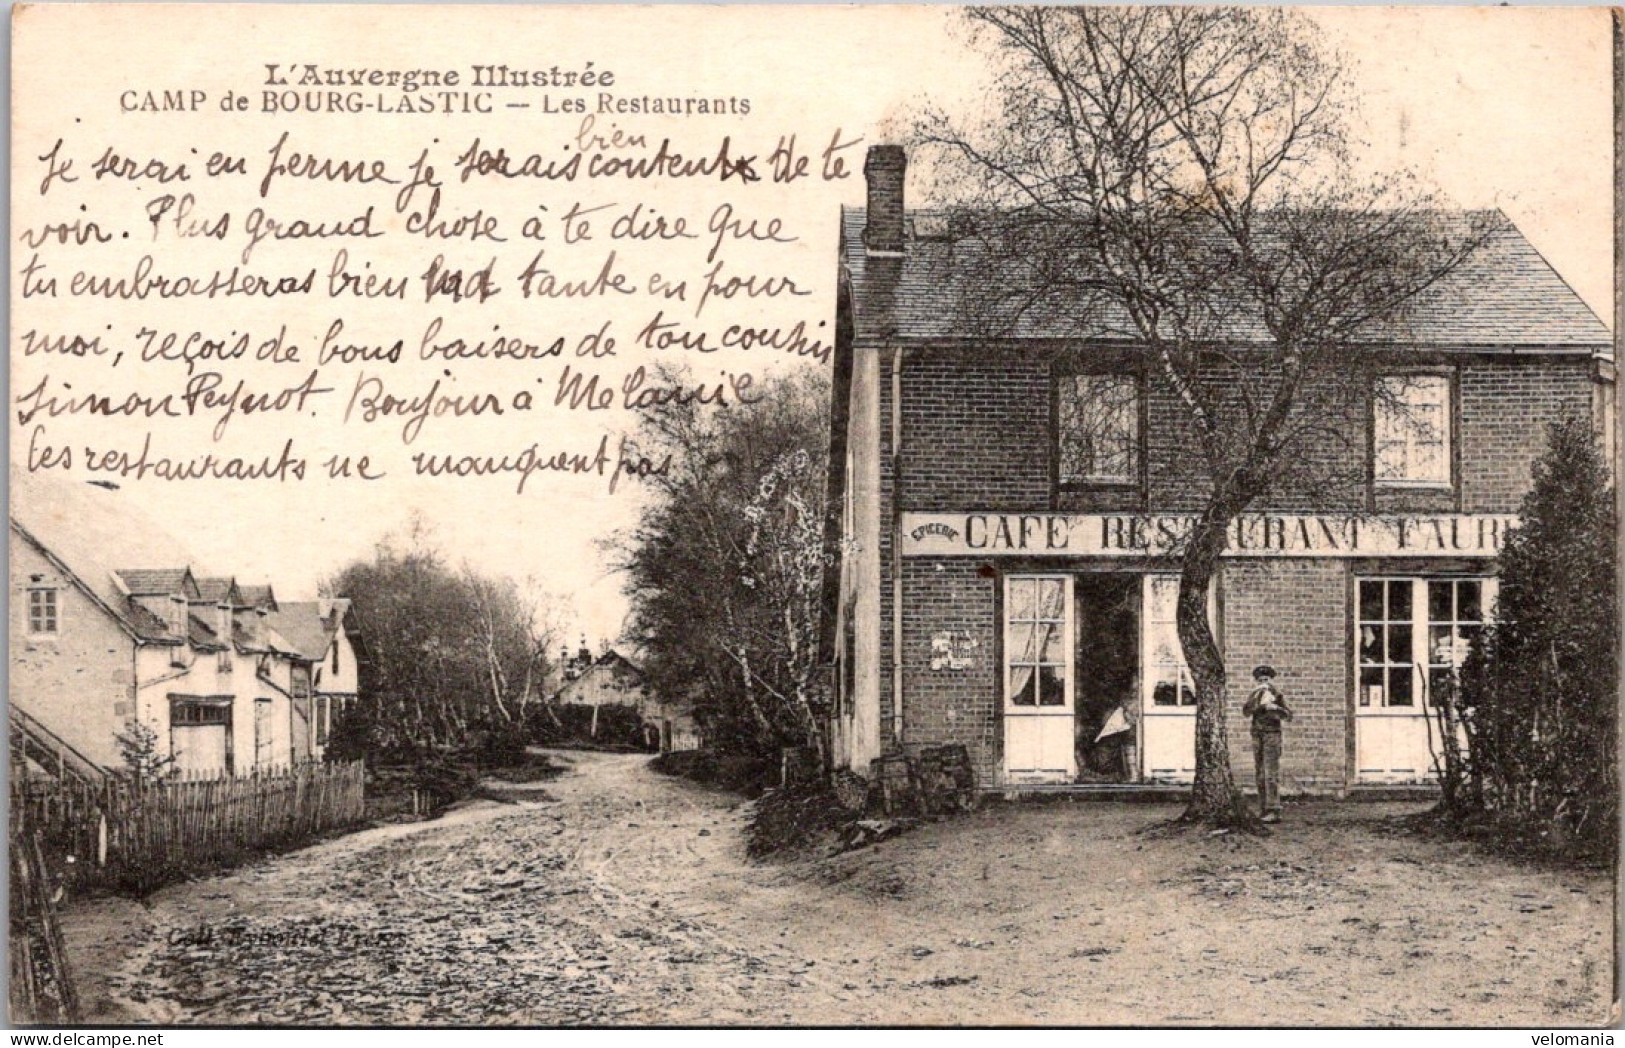 L'Auvergne Illustrée
CAMP de BOURG-LASTIC — Les Restaurants
bien
Je serai en ferme je serais content de te
voir. Plus grand chose à te dire que
tu embrasseras bien tante en pour
moi, reçois de bons baisers de ton cousin
Simon Peynot. Boujour à Mélanie
les restaurants ne manquent pas
EPICERIE CAFE RESTAURANT FAURE
Coll. Eyboulet Frères
delcampe.net
velomania